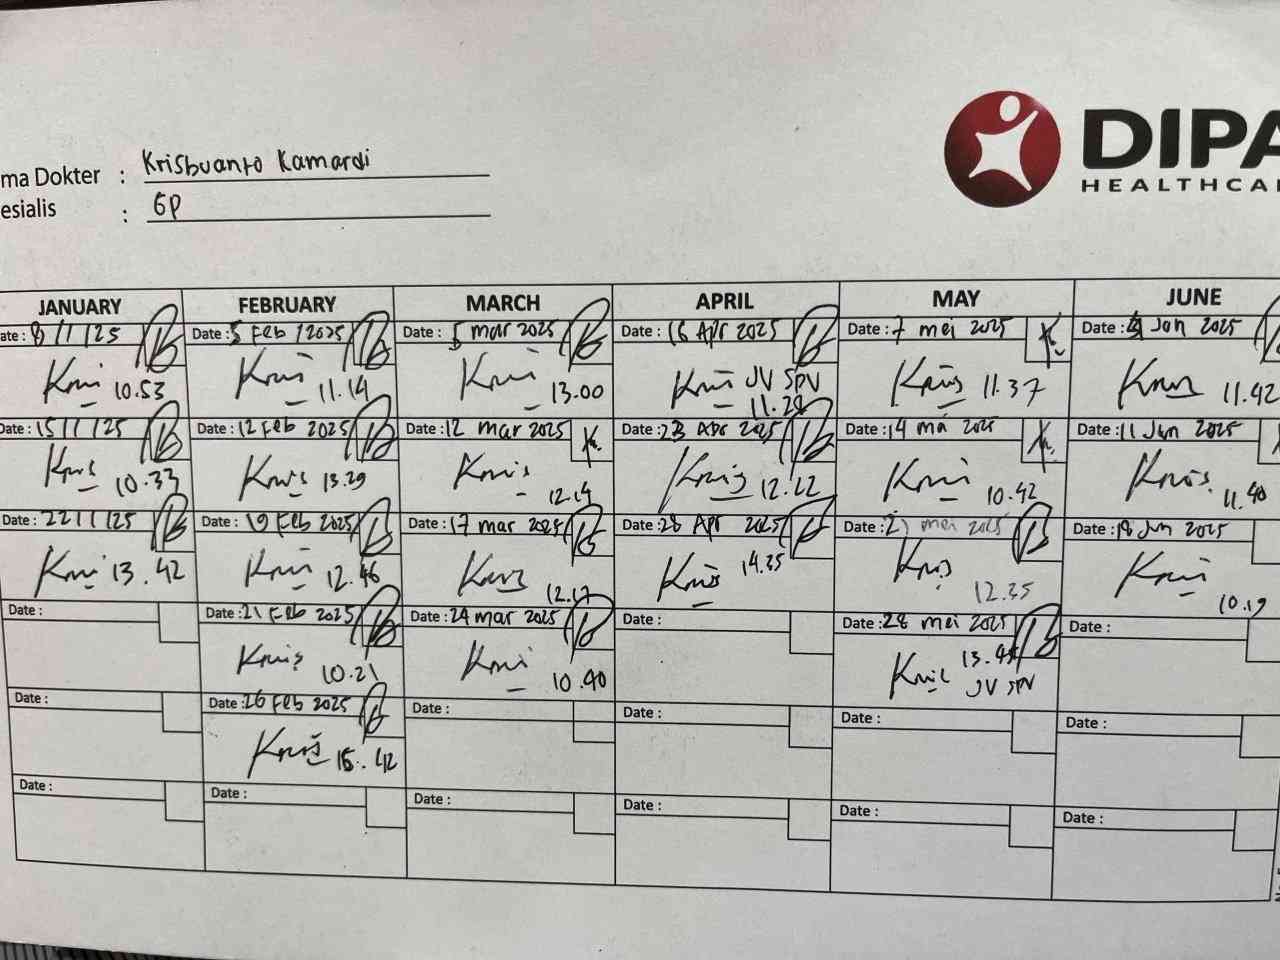 DIPA
HEALTHCA
ma Dokter : Krisbuanto Kamardi
esialis : GP
JANUARY FEBRUARY MARCH APRIL MAY JUNE
ate: 8/1/25 Date: 5 Feb /2025 Date: 5 mar 2025 Date: 16 Apr 2025 Date: 7 mei 2025 Date: 4 Jun 2025
10.53 11.14 13.00 JV SPV 11.37 11.42
11.28
Date: 15/1/25 Date: 12 Feb 2025 Date: 12 mar 2025 Date: 23 Apr 2025 Date: 14 mei 2025 Date: 11 Jun 2025
10.33 13.29 12.14 12.12 10.42 11.40
Date: 22/1/25 Date: 19 Feb 2025 Date: 17 mar 2025 Date: 28 Apr 2025 Date: 21 mei 2025 Date: 18 Jun 2025
13.42 12.46 12.17 14.35 12.35 10.19
Date: Date: 21 Feb 2025 Date: 24 mar 2025 Date: Date: 28 mei 2025 Date:
10.21 10.40 13.45
JV SPV
Date: Date: 26 Feb 2025 Date: Date: Date: Date:
15.42
Date: Date: Date: Date: Date: Date: